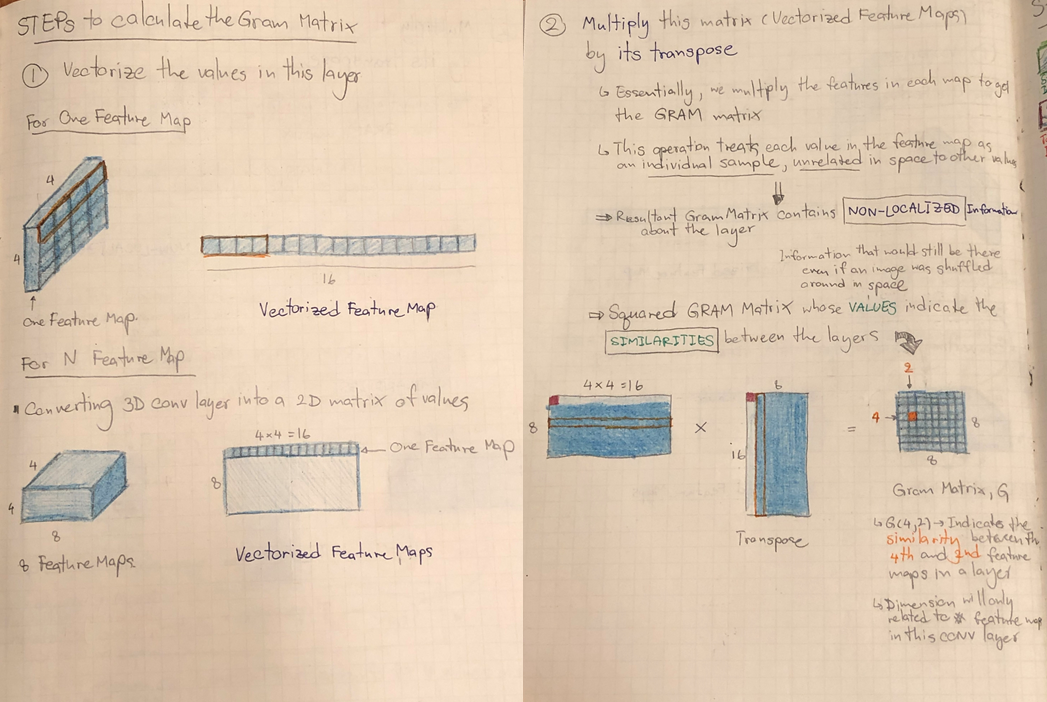 STEPS to calculate the Gram Matrix
① Vectorize the values in this layer
For One Feature Map
4
4
16
One Feature Map.
Vectorized Feature Map
For N Feature Map
Converting 3D conv layer into a 2D matrix of values
4×4 =16
One Feature Map
4
4
8
8
8 Feature Maps
Vectorized Feature Maps
② Multiply this matrix (Vectorized Feature Maps)
by its transpose
↳ Essentially, we multiply the features in each map to get
the GRAM matrix
↳ This operation treats each value in the feature map as
an individual sample, unrelated in space to other value
⇒ Resultant Gram Matrix contains NON-LOCALIZED Information
about the layer
Information that would still be there
even if an image was shuffled
around in space
⇒ Squared GRAM Matrix whose VALUES indicate the
SIMILARITIES between the layers
4×4 =16
8
×
6
16
Transpose
=
2
4
8
8
Gram Matrix, G
↳ G(4,2) → Indicates the
similarity between th
4th and 2nd feature
maps in a layer
↳ Dimension will only
related to # feature map
in this CONV layer